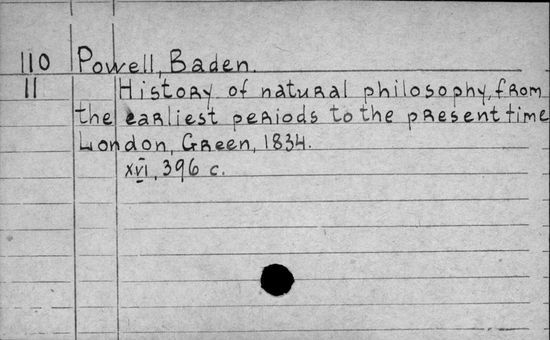 110 Powell, Baden.
11 History of natural philosophy, from
the earliest periods to the present time
London, Green, 1834.
xvi, 396 c.